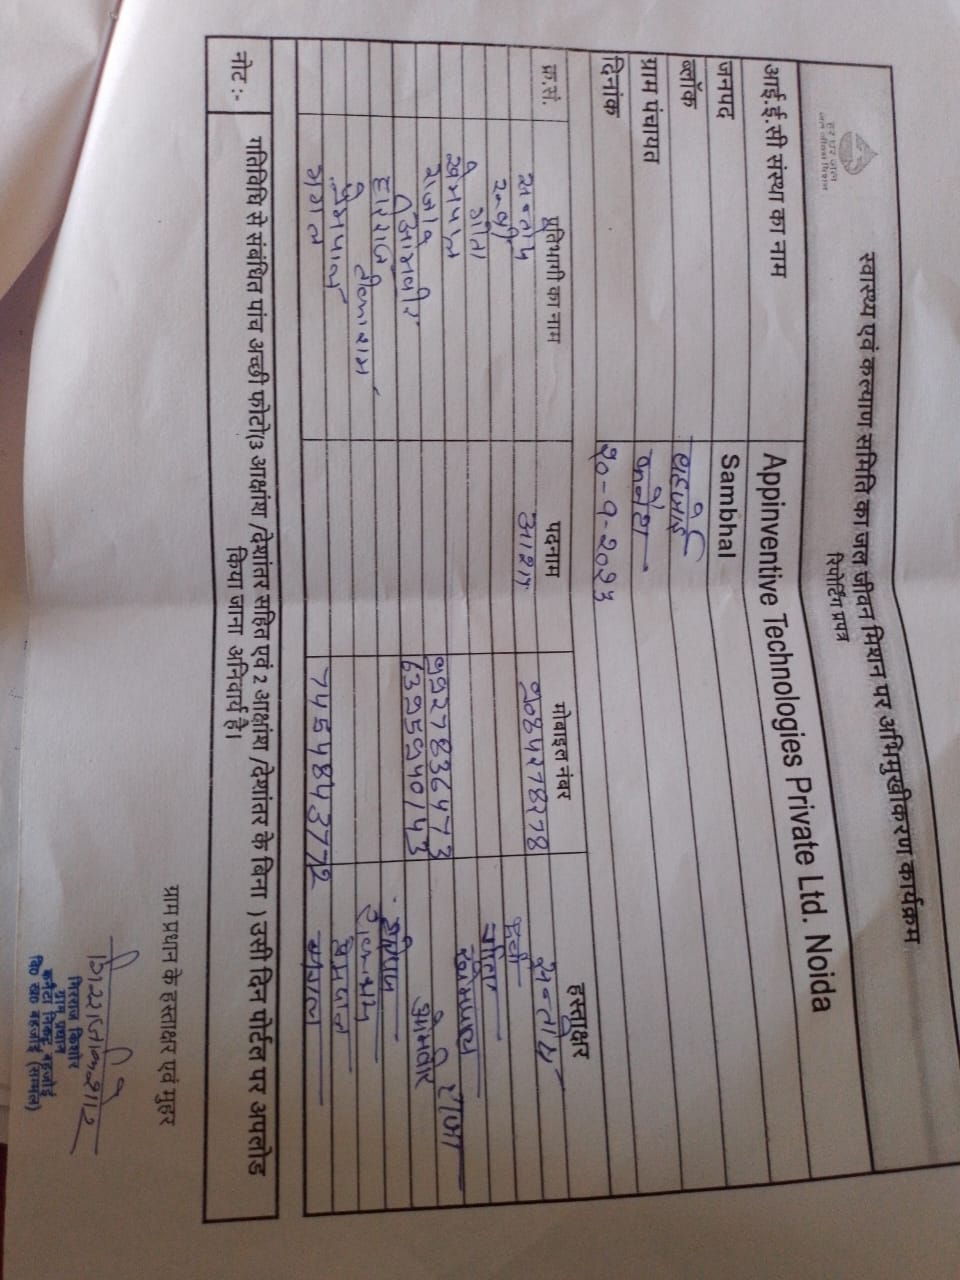 हर घर जल
जल जीवन मिशन
स्वास्थ्य एवं कल्याण समिति का जल जीवन मिशन पर अभिमुखीकरण कार्यक्रम
रिपोर्टिंग प्रपत्र
आई.ई.सी संस्था का नाम Appinventive Technologies Private Ltd. Noida
जनपद Sambhal
ब्लॉक बहजोई
ग्राम पंचायत कनेटा
दिनांक २०-९-२०२३
क्र.सं. प्रतिभागी का नाम पदनाम मोबाइल नंबर हस्ताक्षर
सन्तोष आशा सन्तोष
गीता गीता
खेमपाल खेमपाल
9927836473
ओमवीर 63959540143 ओमवीर
टीकाराम
प्रेमपाल प्रेमपाल
7454843772
नोट :- गतिविधि से संबंधित पांच अच्छी फोटो(3 आक्षांश /देशांतर सहित एवं 2 आक्षांश /देशांतर के बिना ) उसी दिन पोर्टल पर अपलोड
किया जाना अनिवार्य है।
ग्राम प्रधान के हस्ताक्षर एवं मुहर
गिरराज किशोर
गिरराज किशोर
ग्राम प्रधान
कनेटा निकट बहजोई
वि० ख० बहजोई (सम्भल)